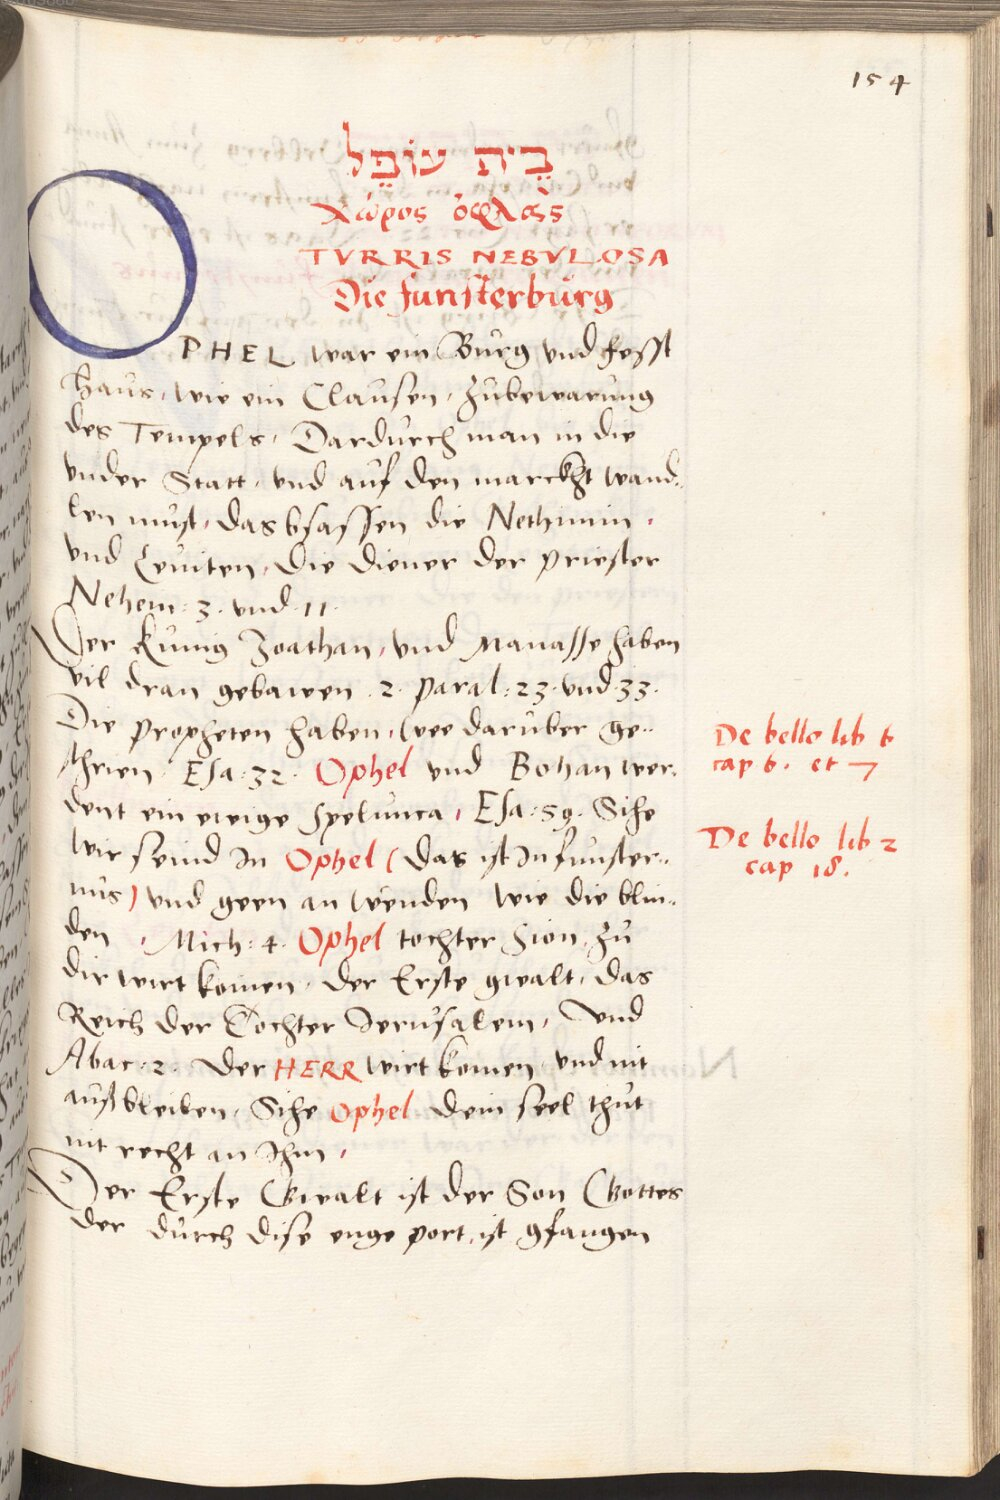 154
בֵית עוֹפֵל
Χώρος ὀφλᾶς
TVRRIS NEBVLOSA
Die funsterburg
OPHEL war ein Burg vnd fesst
Haus, wie ein Clausen, Zubewarung
des Tempels, Dardurch man in die
vnder Statt, vnd auf den marckht wand„
len must, das bsassen die Nethinim,
vnd Leuiten, die diener der priester
Nehem: 3. vnd 11.
Der Kunig Joathan, vnd Manasse haben
vil dran gebawen. 2. paral: 23. vnd 33.
Die propheten haben, wee daruber ge„
schrien. Esa: 32. Ophel vnd Bohan wer„
dent ein ewige spelunca, Esa: 59. Sihe
wir seind In Ophel (das ist In funster„
nus) vnd geen an wenden wie die blin„
den, Mich: 4. Ophel tochter Sion, Zu
dir wirt komen, der Erste gwalt, das
Reich der Tochter Jerusalem, Vnd
Abac: 2. Der HERR wirt komen vnd nit
aussbleiben, Sihe Ophel dein seel thut
nit recht an Ihm,
Der Erste Gwalt ist der Son Gottes
der durch dise enge port, ist gfangen
De bello lib 6
cap 6. et 7
De bello lib 2
cap 18.